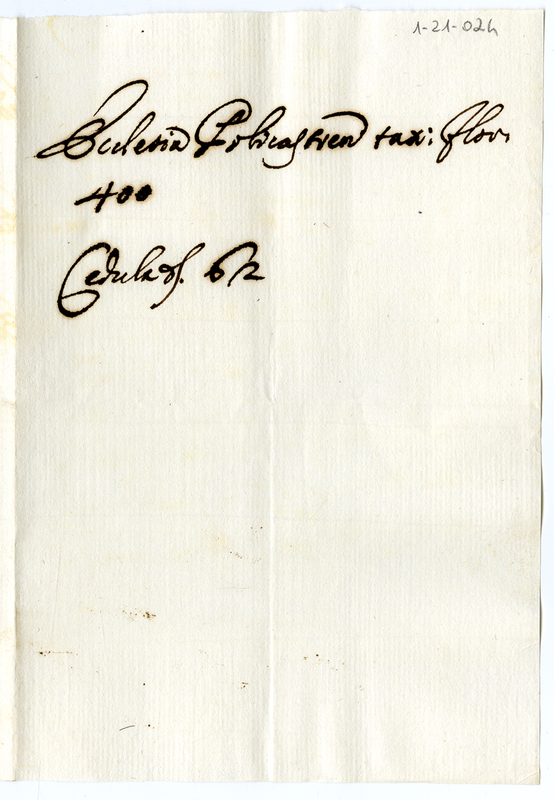 1-21-024
Ecclesia Policastren tax: flor.
400
Cedula ds. 62